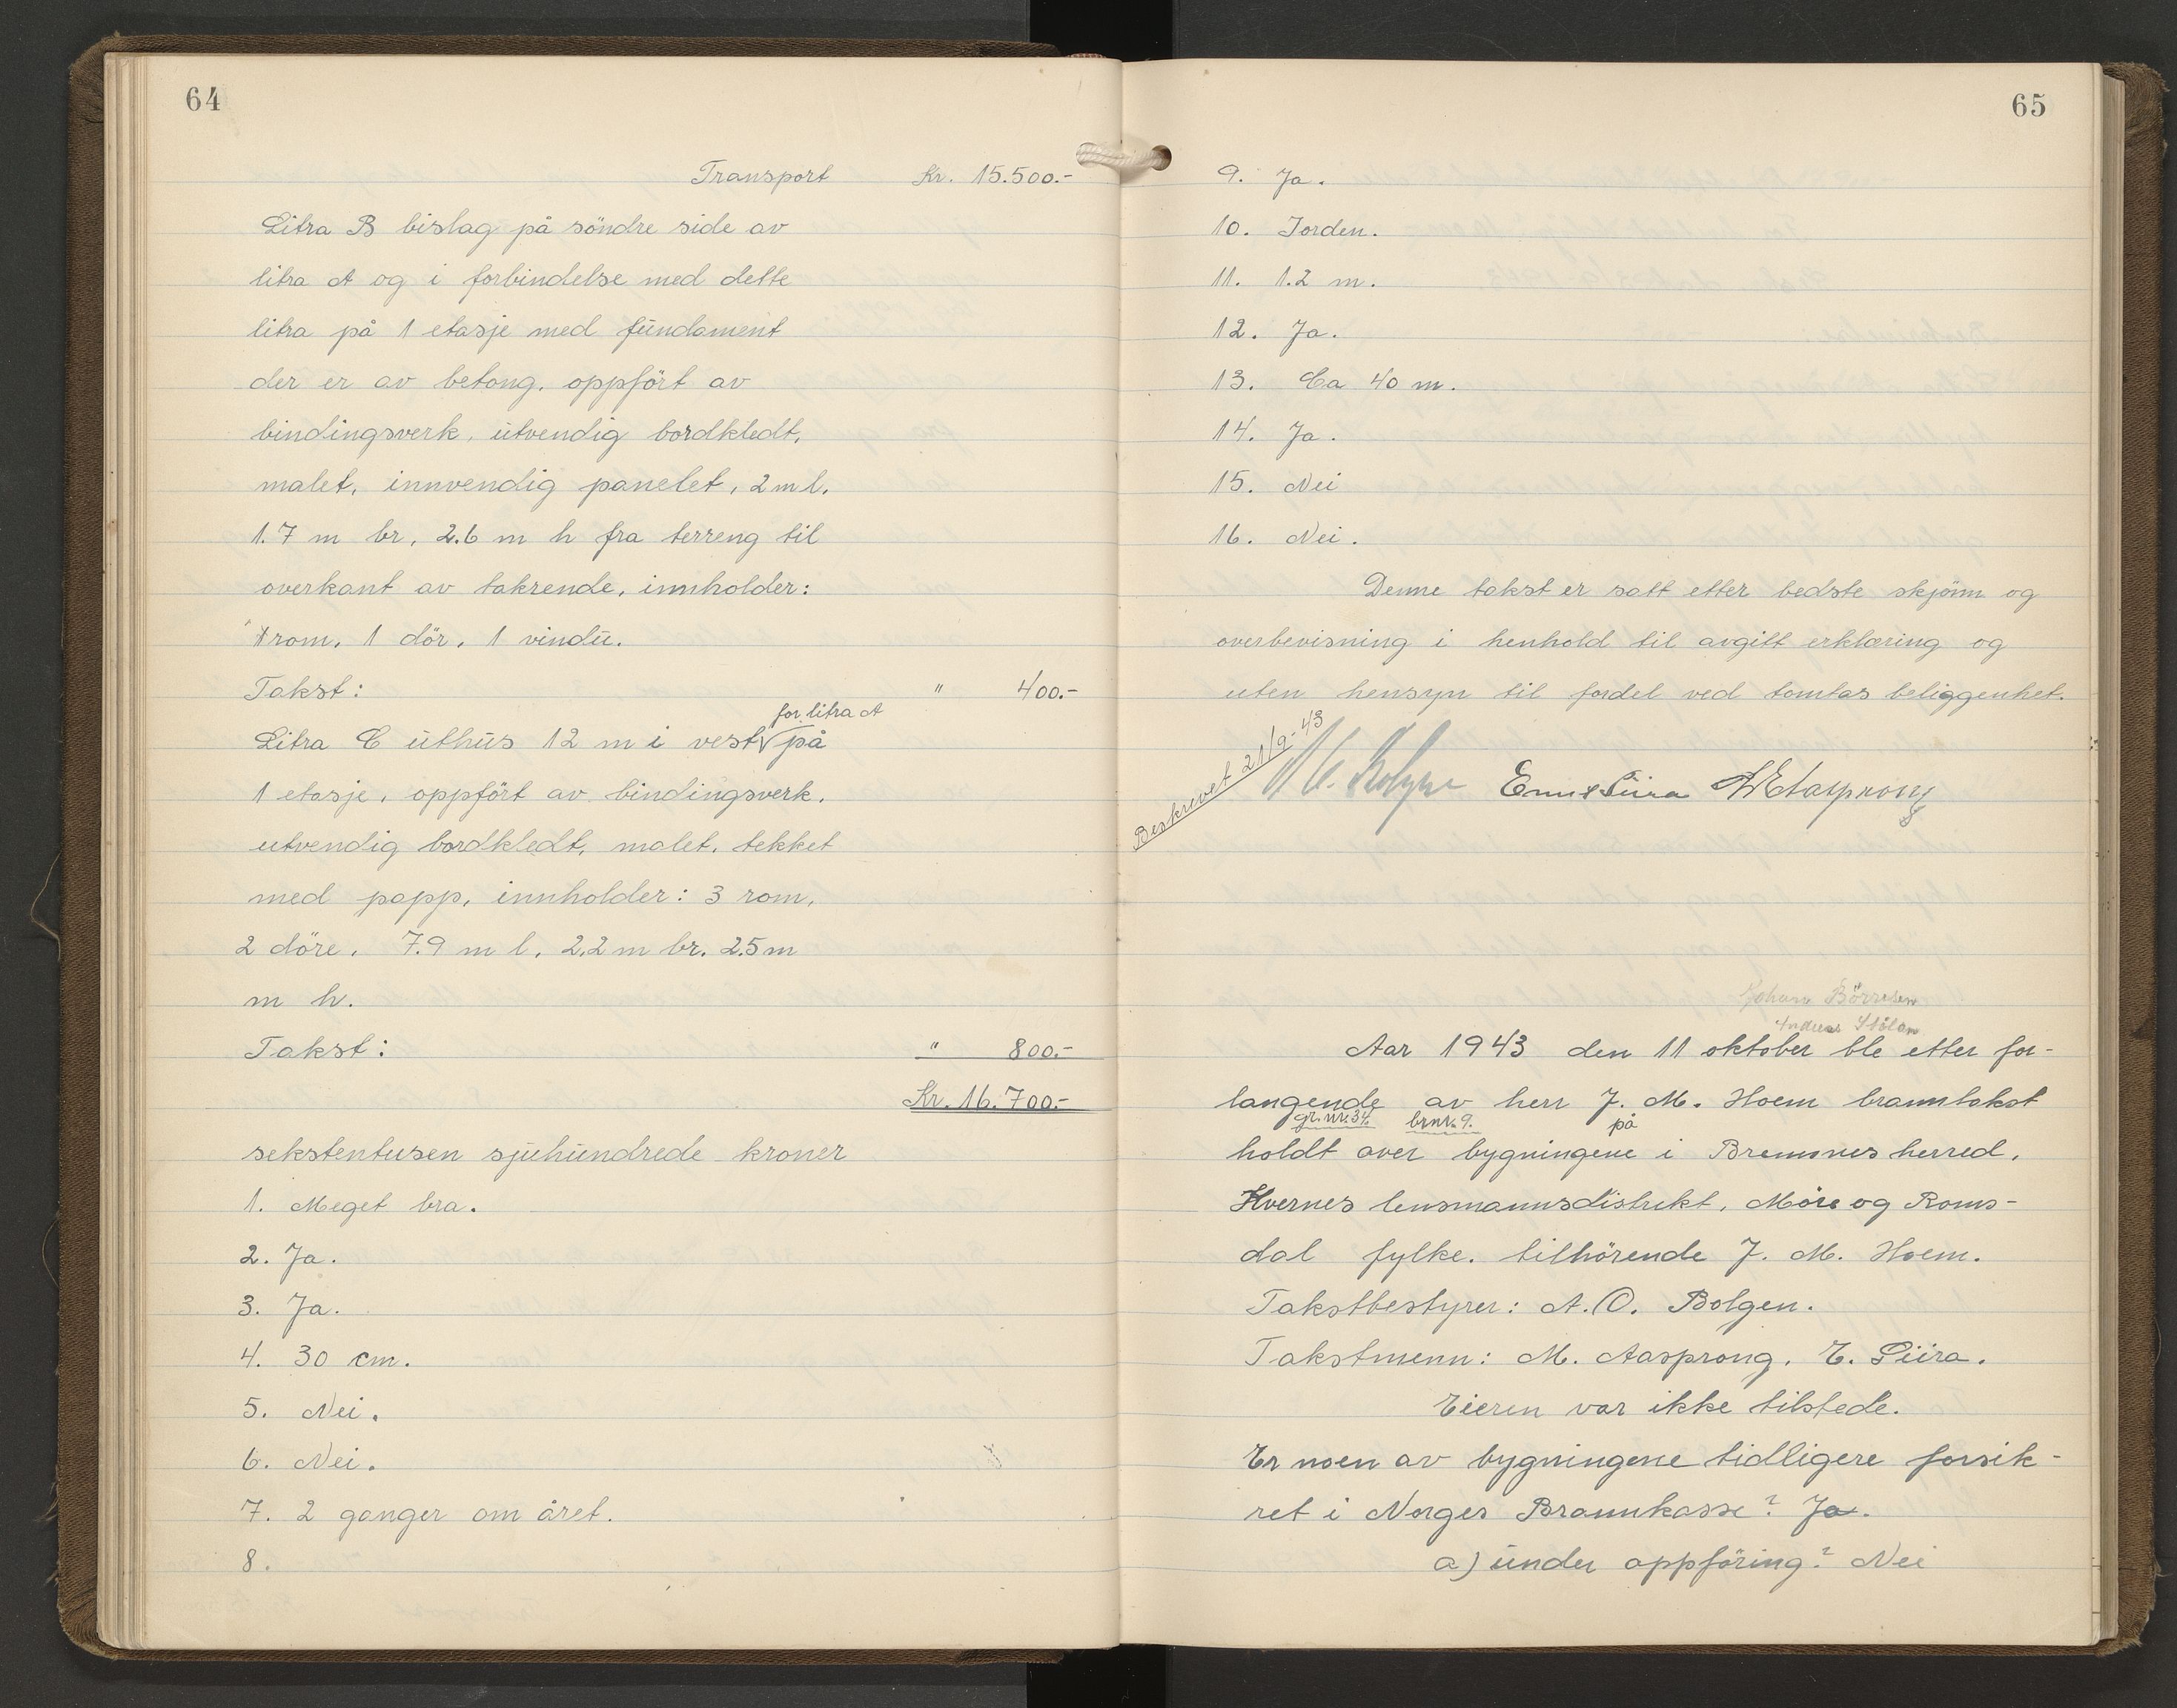 64
Transport Kr. 15.500.-
Litra B bislag på söndre side av
litra A og i forbindelse med dette
litra på 1 etasje med fundament
der er av betong, oppfört av
bindingsverk, utvendig bordkledt,
malet, innvendig panelet, 2 m l.
1.7 m br, 2.6 m h fra terreng til
overkant av takrende, innholder:
1 rom, 1 dör, 1 vindu.
Takst: " 400.-
for litra A
Litra C uthus 12 m i vest på
1 etasje, oppfört av bindingsverk,
utvendig bordkledt, malet, tekket
med papp, innholder: 3 rom,
2 döre, 7.9 m l, 2.2 m br. 2.5 m
m h.
Takst: " 800.-
Kr. 16.700.-
sekstentusen sjuhundrede kroner
1. Meget bra.
2. Ja.
3. Ja.
4. 30 cm.
5. Nei.
6. Nei.
7. 2 ganger om året.
8.
65
9. Ja.
10. Jorden.
11. 1.2 m.
12. Ja.
13. Ca 40 m.
14. Ja.
15. Nei
16. Nei.
Denne takst er satt etter bedste skjönn og
overbevisning i henhold til avgitt erklæring og
uten hensyn til fordel ved tomtas beliggenhet.
Beskrevet 21/9-43
Johan Börresen
Stölan
Aar 1943 den 11 oktober ble etter for-
langende av herr J. M. Hoem branntakst
gr.nr. 34. brnr. 9. på
holdt over bygningene i Bremsnes herred,
Kvernes lensmannsdistrikt, Möre og Roms-
dal fylke. tilhörende J. M. Hoem.
Takstbestyrer: A. O. Bolgen.
Takstmenn: M. Aasprong, E. Siira.
Eieren var ikke tilstede.
Er noen av bygningene tidligere forsik-
ret i Norges Brannkasse? Ja.
a) under oppföring? Nei